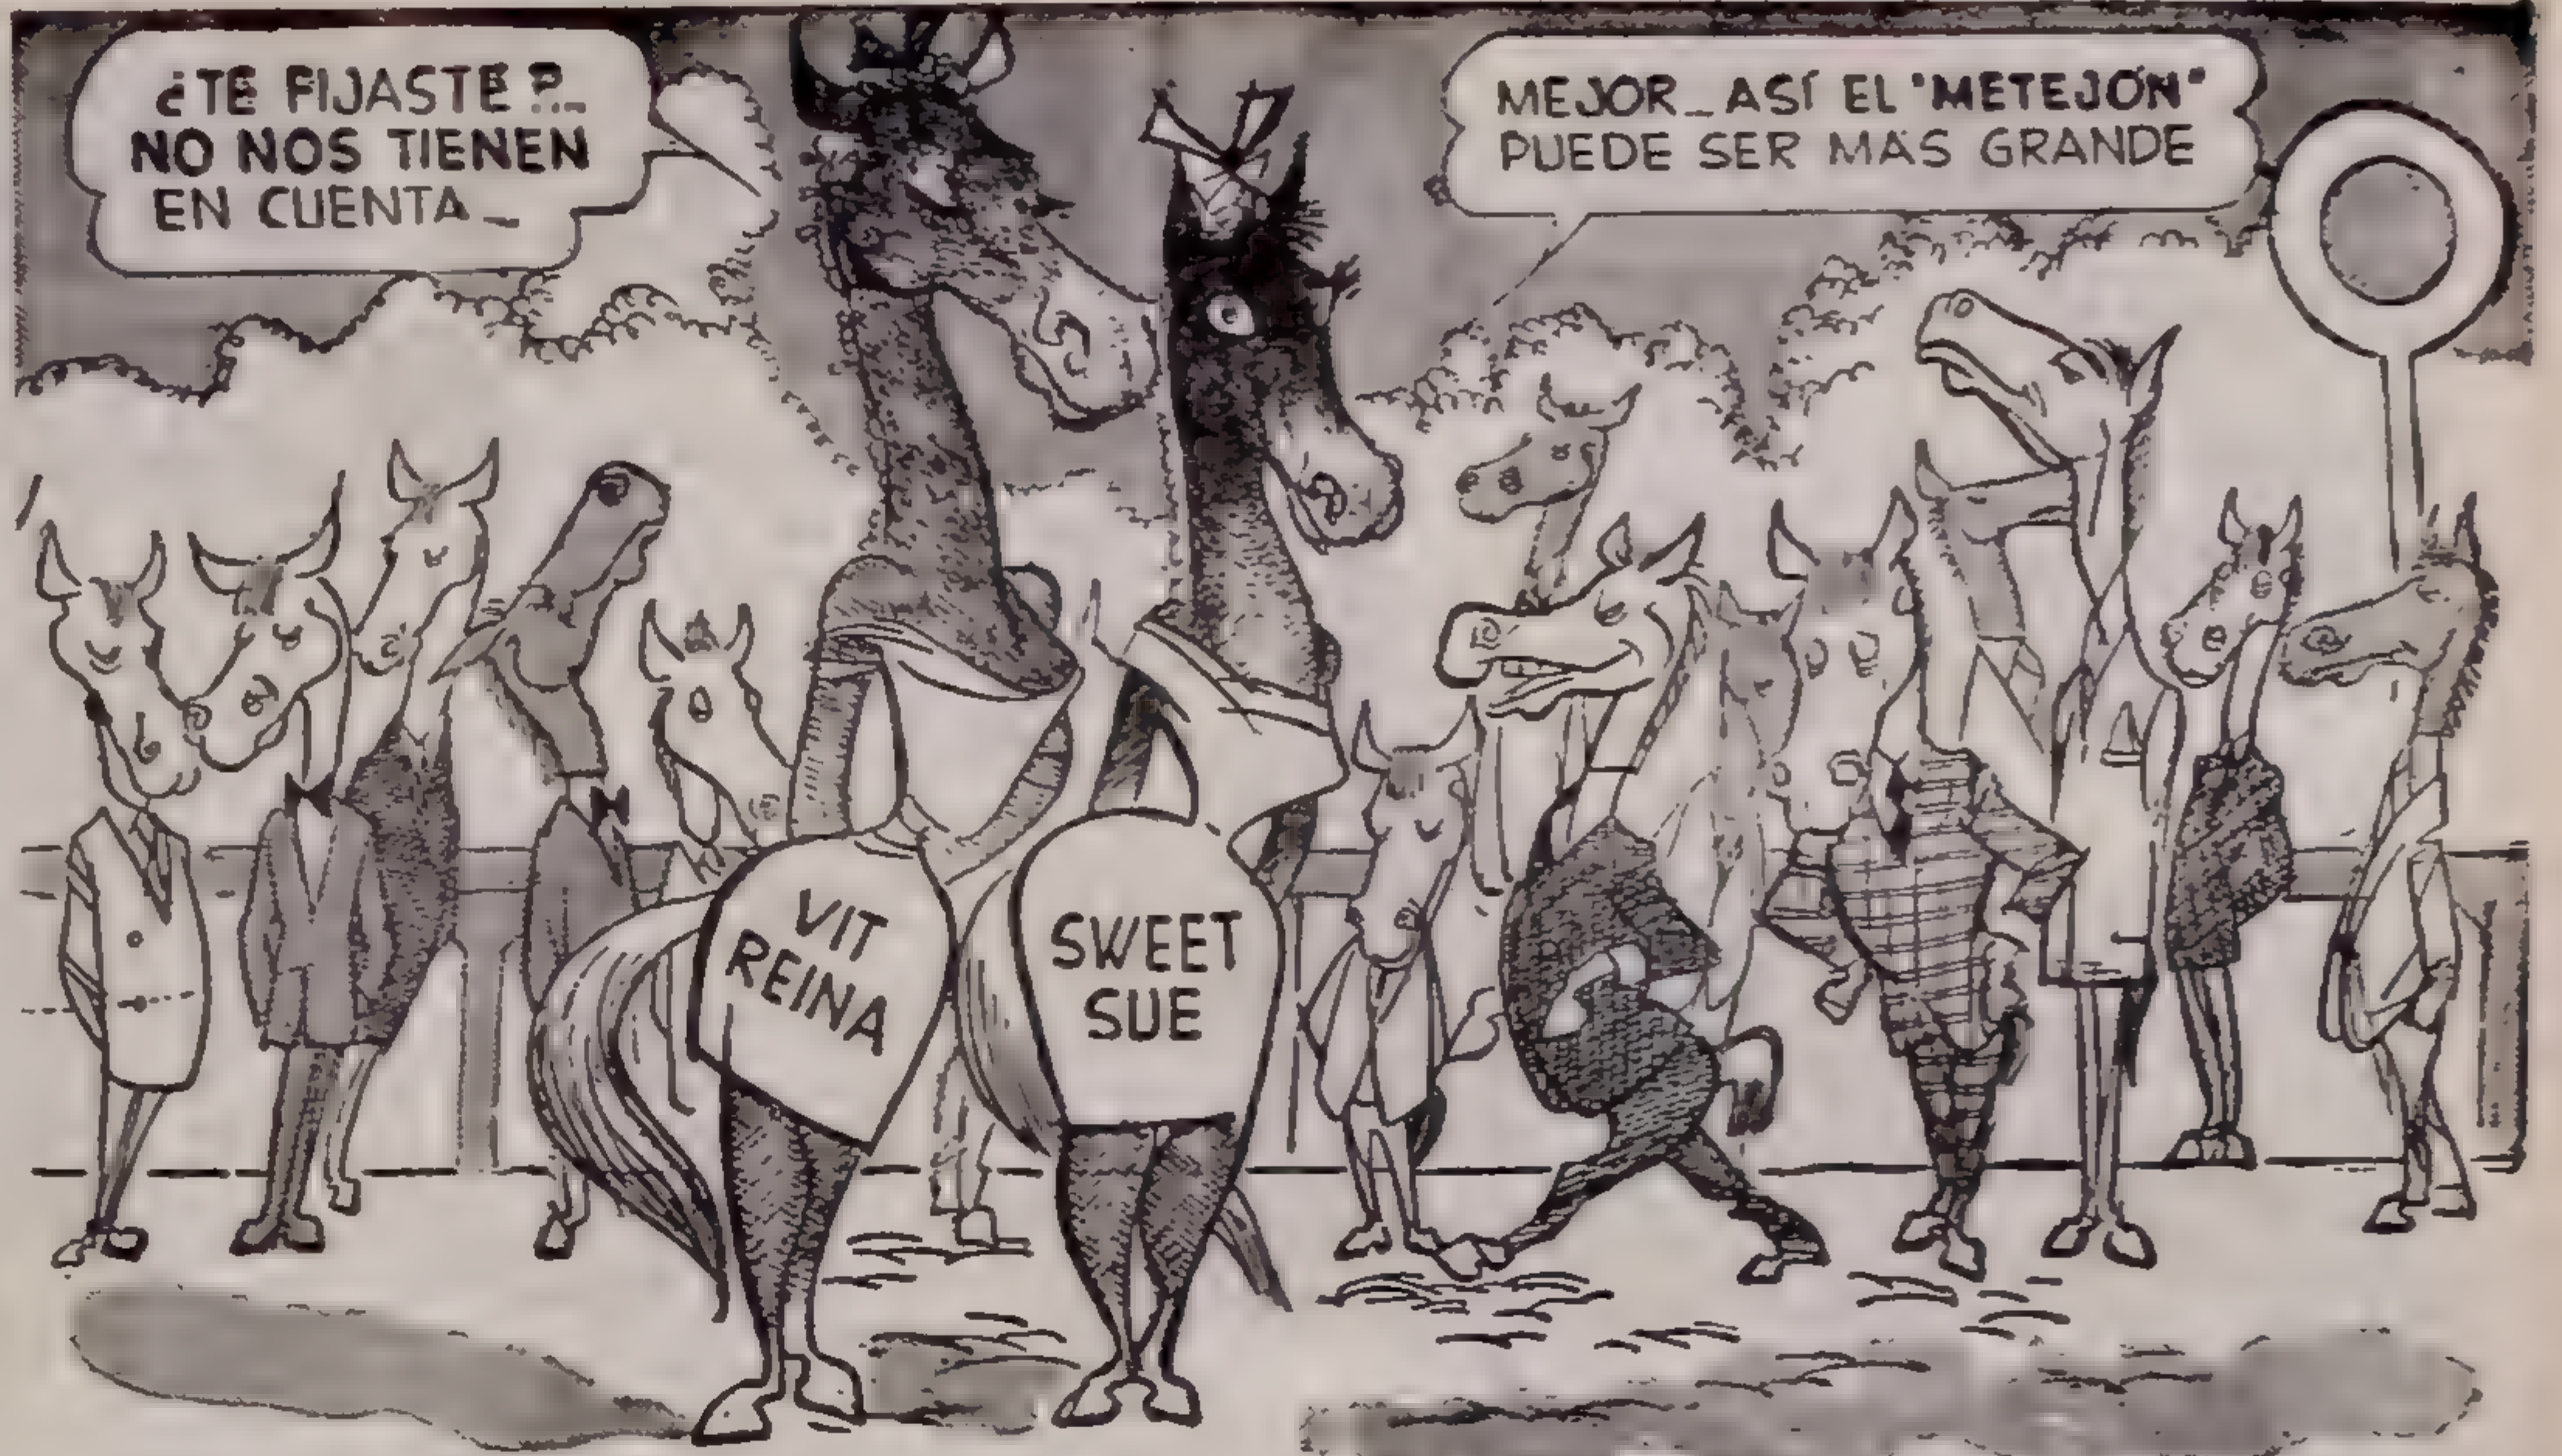 ¿TE FIJASTE?_
NO NOS TIENEN
EN CUENTA_
MEJOR_ASÍ EL "METEJÓN"
PUEDE SER MÁS GRANDE
VIT
REINA
SWEET
SUE